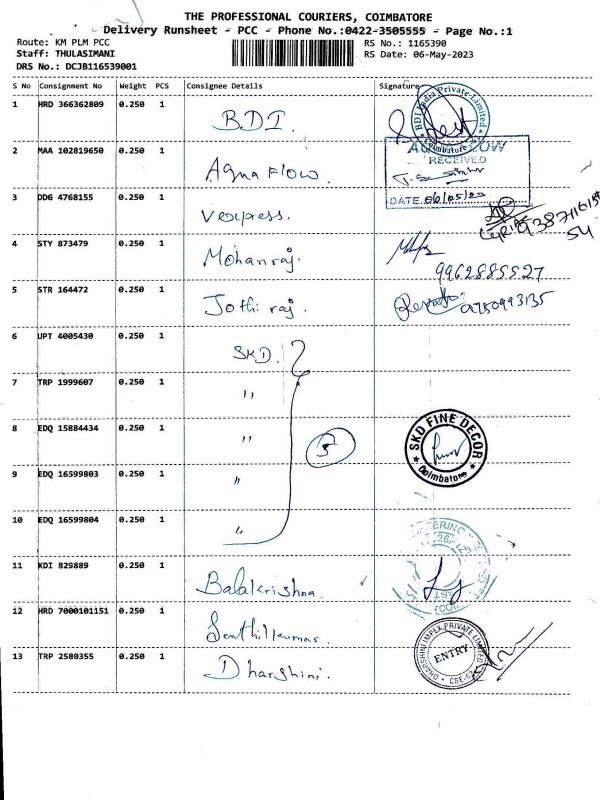 THE PROFESSIONAL COURIERS, COIMBATORE
Delivery Runsheet - PCC - Phone No.:0422-3505555 - Page No.:1
Route: KM PLM PCC
Staff: THULASIMANI
DRS No.: DCJB116539001
RS No.: 1165390
RS Date: 06-May-2023
S No Consignment No Weight PCS Consignee Details Signature
1 HRD 366362809 0.250 1 BDI.
BDI India Private Limited
Coimbatore
2 MAA 102819650 0.250 1 Aqua Flow.
RECEIVED
DATE. 06/05/23
3 DDG 4768155 0.250 1 Vexpress.
4 STY 873479 0.250 1 Mohanraj.
9962885527
5 STR 164472 0.250 1 Jothi raj.
6 UPT 4005430 0.250 1 SKD.
7 TRP 1999607 0.250 1 "
8 EDQ 15884434 0.250 1 " 5
SKD FINE DECOR
Coimbatore
9 EDQ 16599803 0.250 1 "
10 EDQ 16599804 0.250 1 "
11 KDI 829889 0.250 1 Balakrishna.
12 HRD 7000101151 0.250 1 Senthilkumar.
13 TRP 2580355 0.250 1 Dharshini.
DHARSHINI IMPEX PRIVATE LIMITED
ENTRY